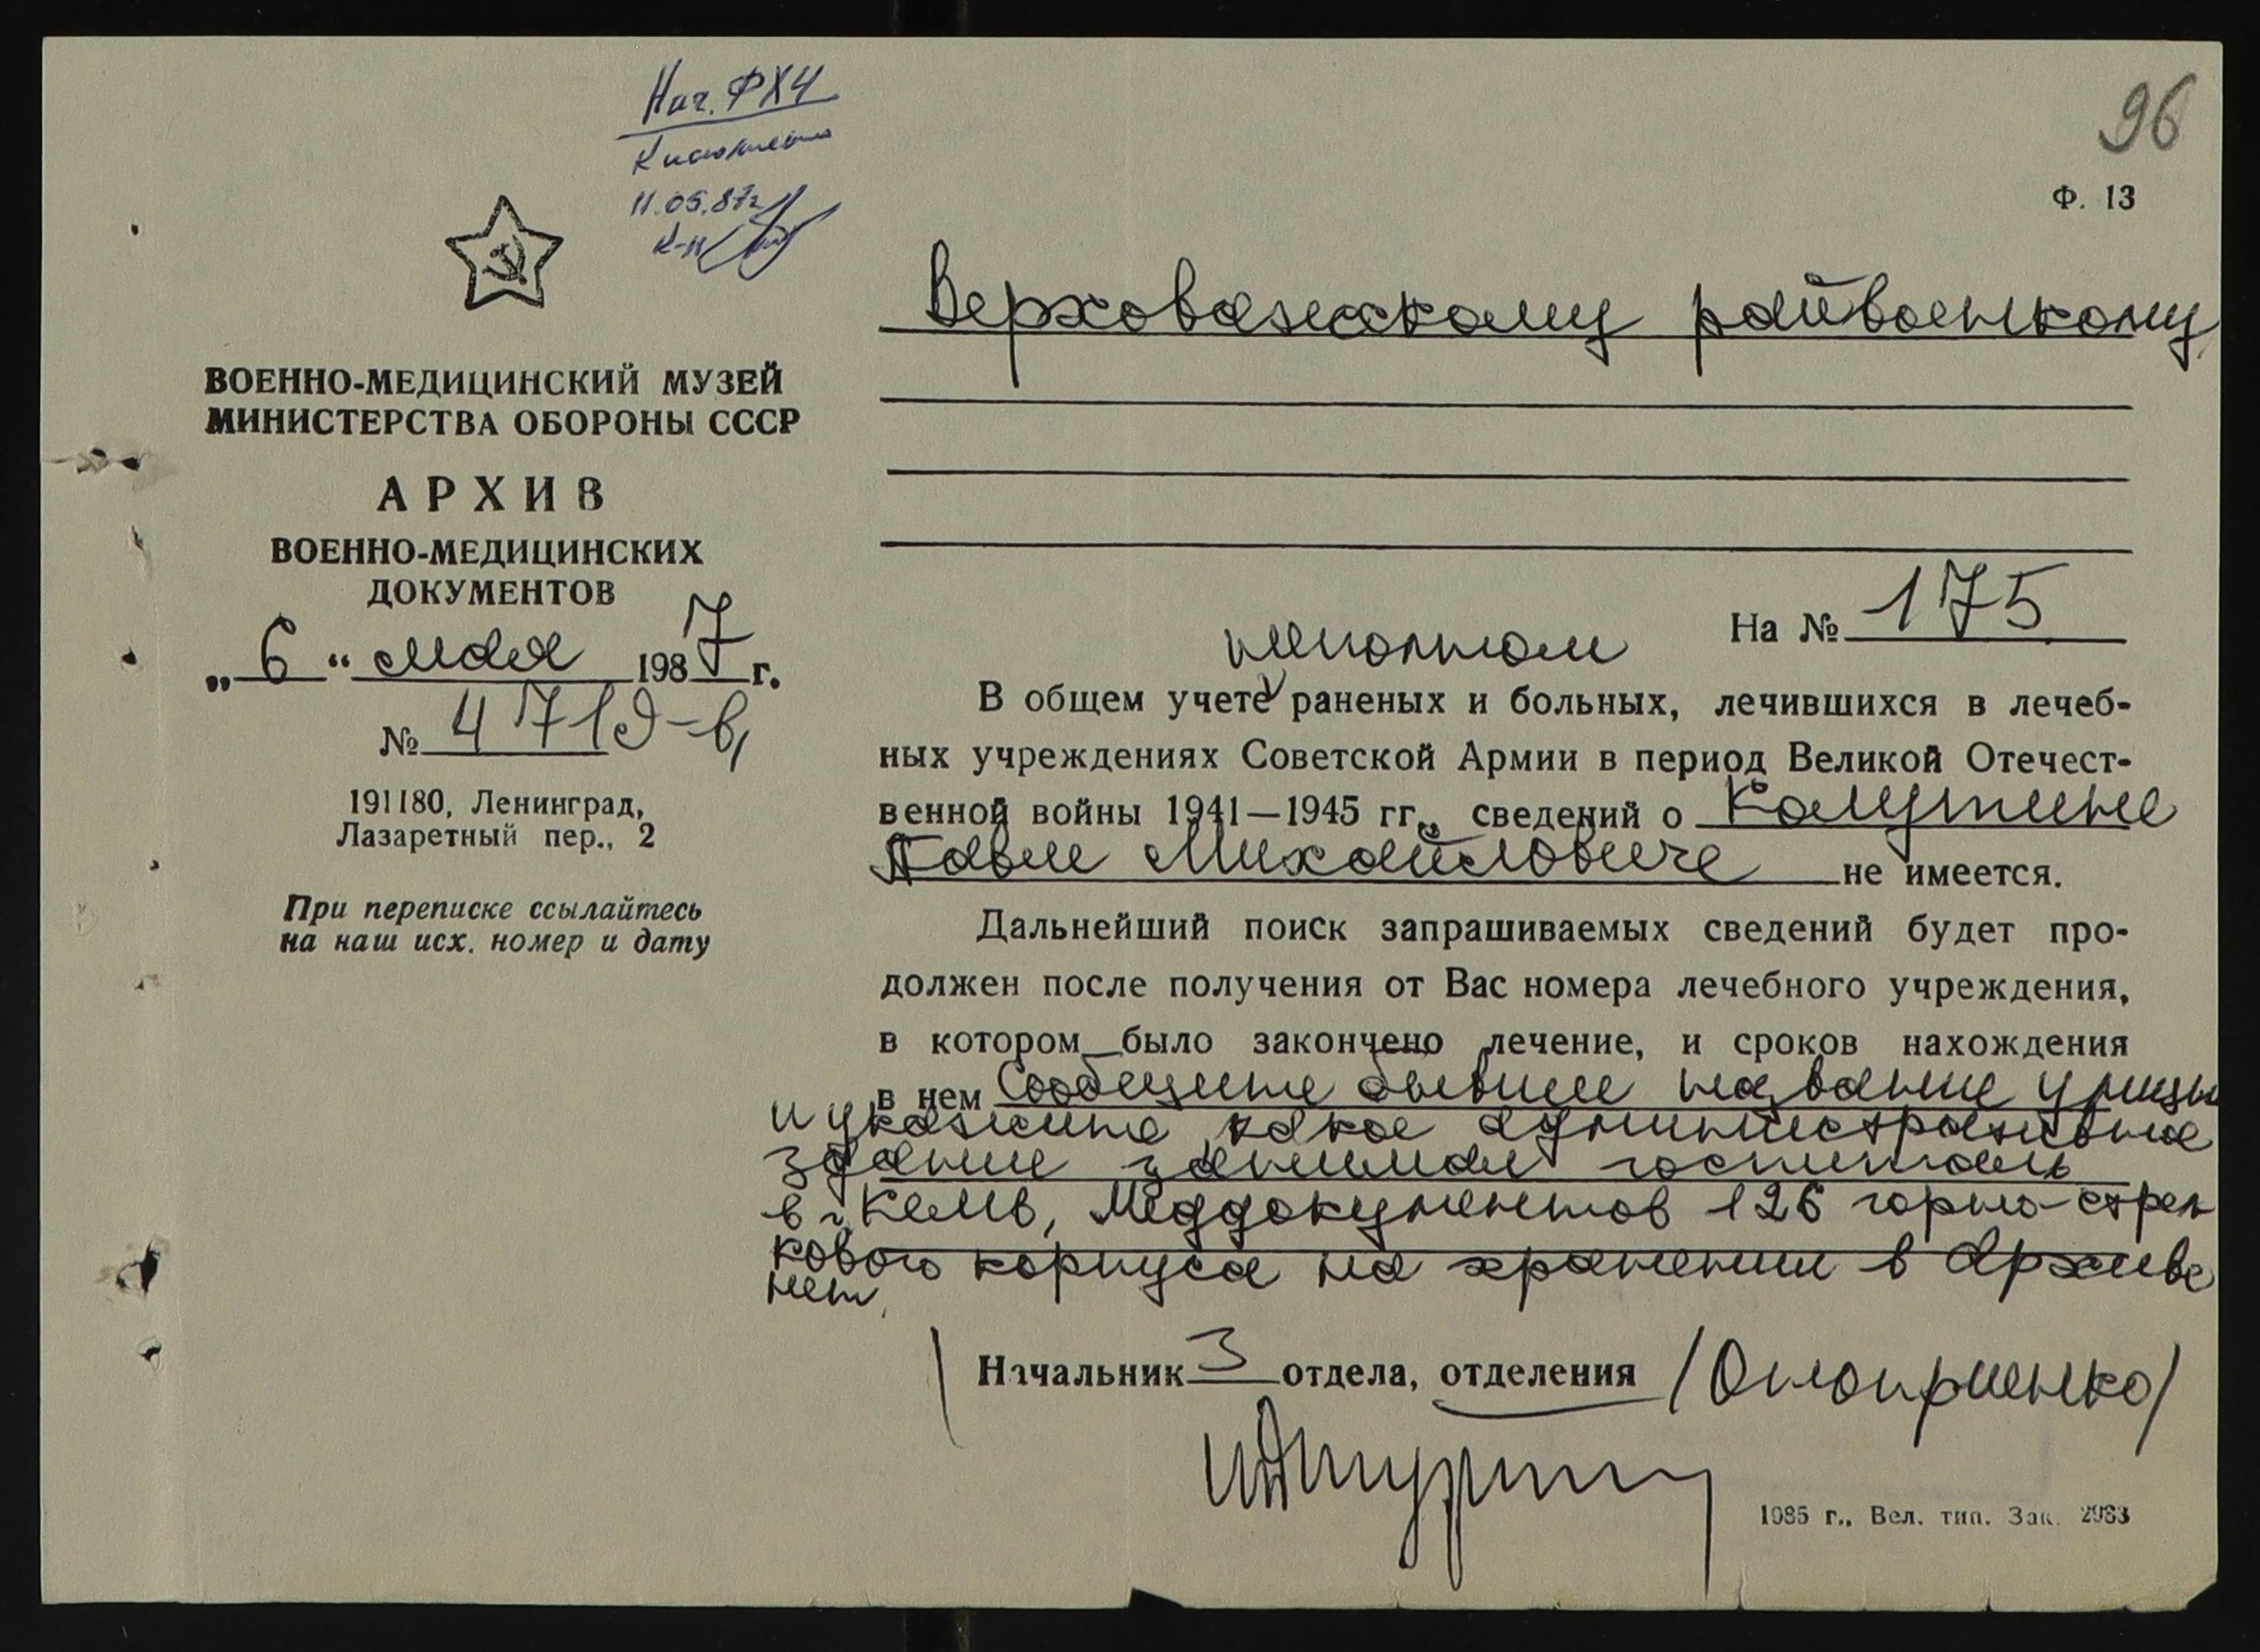 Нач. ФХЧ
К исполнению
11.05.87г
К-н
96
Ф. 13
Верховажскому райвоенкому
ВОЕННО-МЕДИЦИНСКИЙ МУЗЕЙ
МИНИСТЕРСТВА ОБОРОНЫ СССР
АРХИВ
ВОЕННО-МЕДИЦИНСКИХ
ДОКУМЕНТОВ
„6“ мая 1987 г.
№ 4719-в,
191180, Ленинград,
Лазаретный пер., 2
При переписке ссылайтесь
на наш исх. номер и дату
На № 175
неполном
В общем учете раненых и больных, лечившихся в лечеб-
ных учреждениях Советской Армии в период Великой Отечест-
венной войны 1941—1945 гг., сведений о Камутине
Павле Михайловиче не имеется.
Дальнейший поиск запрашиваемых сведений будет про-
должен после получения от Вас номера лечебного учреждения,
в котором было закончено лечение, и сроков нахождения
в нем Сообщите бывшее название улицы
и укажите, какое административное
здание занимал госпиталь
в г. Кемь, Меддокументов 126 горно-стрел
кового корпуса на хранении в Архиве
нет.
Начальник 3 отдела, отделения /Оноприенко/
1985 г., Вел. тип. Зак. 2983